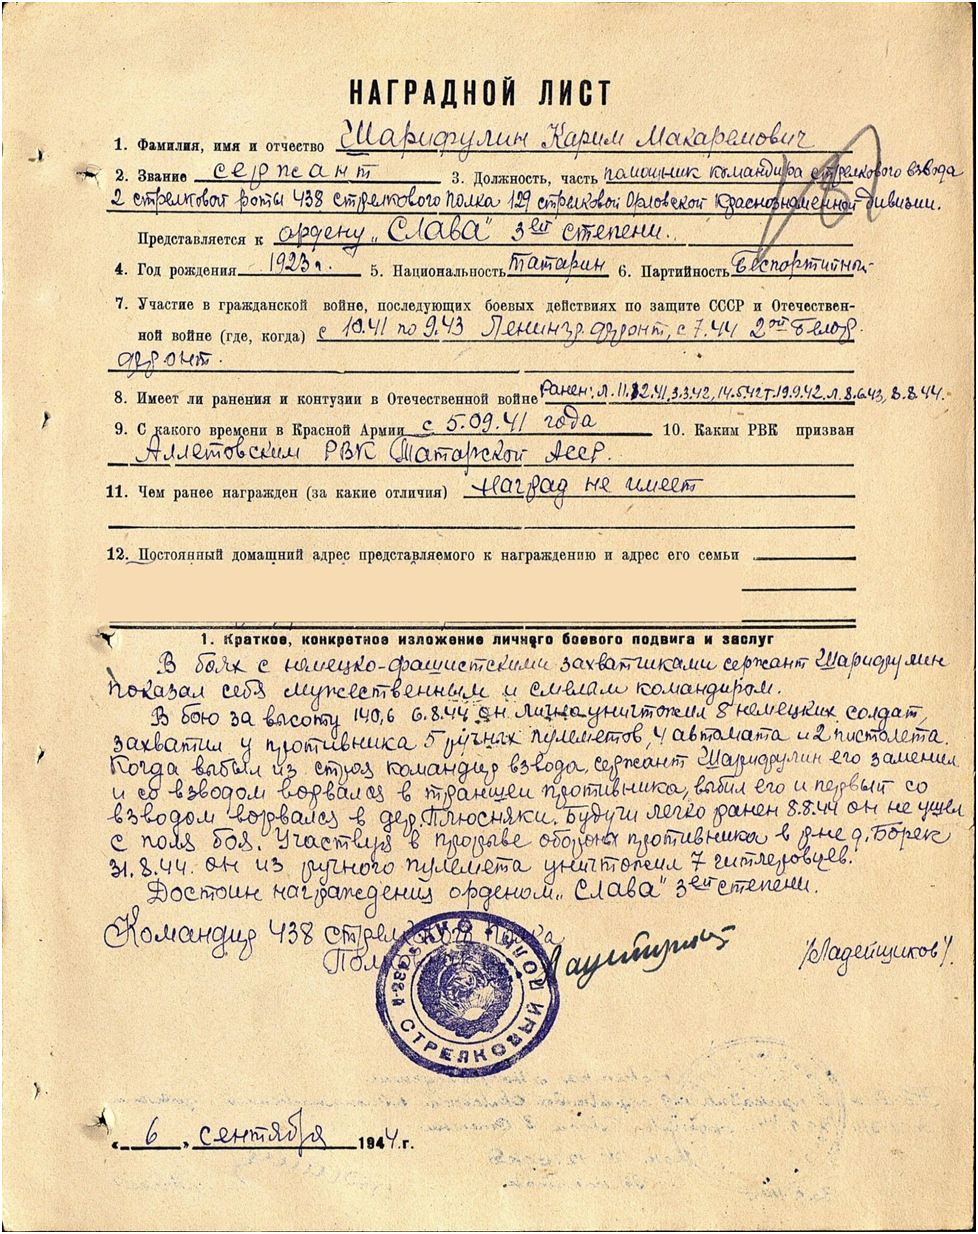 НАГРАДНОЙ ЛИСТ
1. Фамилия, имя и отчество Шарифулин Карим Макаремович
2. Звание сержант 3. Должность, часть помощник командира стрелкового взвода
2 стрелковой роты 438 стрелкового полка 129 стрелковой Орловской Краснознаменной дивизии.
Представляется к ордену „Слава" 3ей степени.
4. Год рождения 1923 г. 5. Национальность Татарин 6. Партийность беспортийный
7. Участие в гражданской войне, последующих боевых действиях по защите СССР и Отечествен-
ной войне (где, когда) с 10.41 по 9.43 Ленингр. фронт, с 7.44 2ой Белор.
фронт.
8. Имеет ли ранения и контузии в Отечественной войне Ранен: л. 11.12.41, 3.3.42, 14.5.42 т. 19.9.42 л. 8.6.43, 8.8.44.
9. С какого времени в Красной Армии с 5.09.41 года 10. Каким РВК призван
Аллетовским РВК Татарской Асср.
11. Чем ранее награжден (за какие отличия) наград не имеет
12. Постоянный домашний адрес представляемого к награждению и адрес его семьи
1. Краткое, конкретное изложение личного боевого подвига и заслуг
В боях с немецко-фашистскими захватчиками сержант Шарифулин
показал себя мужественным и смелым командиром.
В бою за высоту 140,6 6.8.44 он лично уничтожил 8 немецких солдат,
захватил у противника 5 ручных пулеметов, 4 автомата и 2 пистолета.
Когда выбыл из строя командир взвода, сержант Шарифулин его заменил
и со взводом ворвался в траншеи противника, выбил его и первый со
взводом ворвался в дер. Плюсняки. Будучи легко ранен 8.8.44 он не ушел
с поля боя. Участвуя в прорыве обороны противника в р-не д. Борек
31.8.44. он из ручного пулемета уничтожил 7 гитлеровцев.
Достоин награждения орденом „Слава" 3ей степени.
Командир 438 стрелкового полка
/Ладейщиков/.
438-й СТРЕЛКОВЫЙ ПОЛК
„ 6 „ сентября 1944 г.